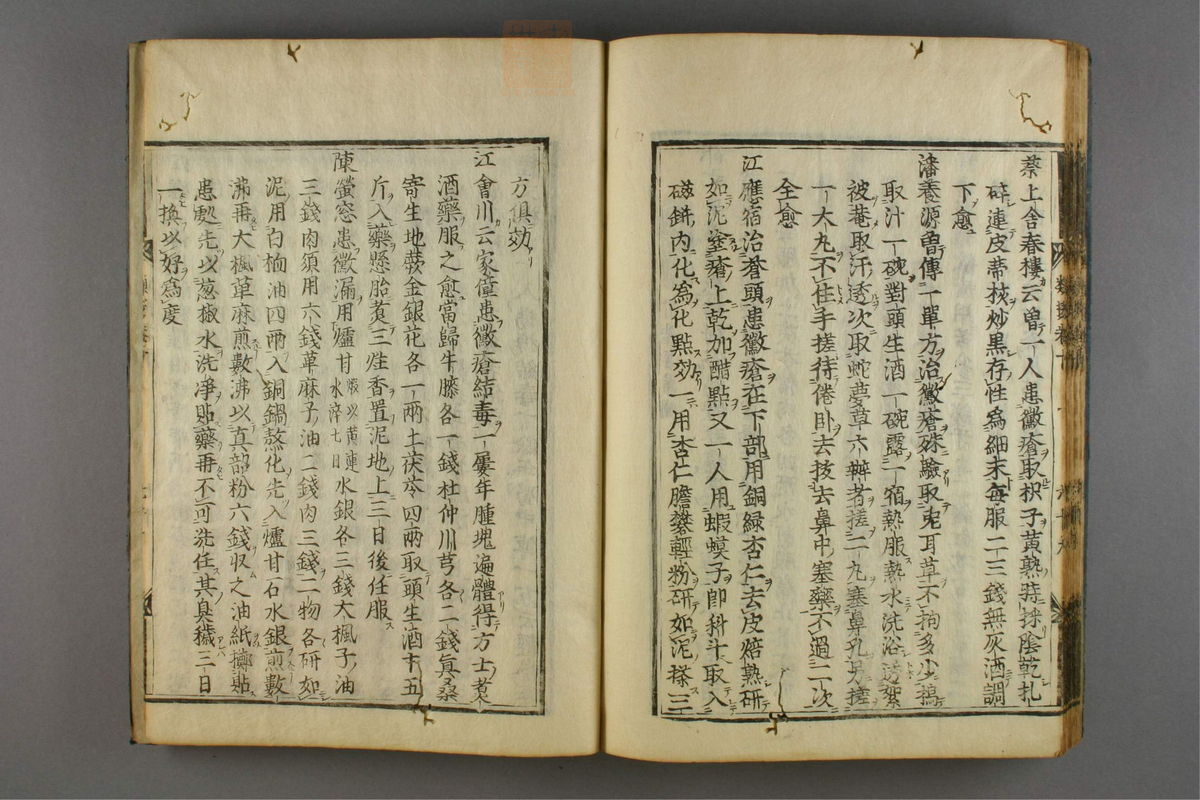 蔡上舍春樓云曽一人患黴瘡取枳子黃熟蒔採陰乾扎
碎連皮蒂核炒黒存性爲細末每服二三錢無灰酒調
下愈
潘養源曽傳一單方治黴瘡殊驗取兎耳草不拘多少搗
取汁一碗對頭生酒一碗露一宿熱服熱水洗浴透絮
被菴取汗透次取蛇夢草六瓣者搓二丸塞鼻孔另搓
一木丸不住手搓待倦卧去扳去鼻中塞藥不過二次
全愈
江應宿治蒼頭患黴瘡在下部用銅緑杏仁去皮焙熟研
如泥塗瘡上乾加醋點又一人用蝦蟆子卽科斗取入
磁鉼内化爲化點効一用杏仁膽礬輕粉研如泥搽三
方俱効
江會川云家僮患黴瘡結毒一屢年腫塊遍體得方士煮
酒藥服之愈當歸牛膝各一錢杜仲川芎各二錢眞桑
寄生地蕨金銀花各一兩土茯苓四兩取頭生酒十五
斤入藥懸胎煮三炷香置泥地上三日後任服
陳螢窓患黴漏用爐甘煅以黄連水淬七日水銀各三錢大楓子油
三錢肉須用六錢萆麻子油二錢肉三錢二物各研如
泥用白桕油四兩入銅鍋熬化先入爐甘石水銀煎數
沸再大楓萆麻煎數沸以真韶粉六錢収之油紙攤貼
患處先以葱椒水洗淨貼藥再不可洗任其臭穢三日
一換以好爲度